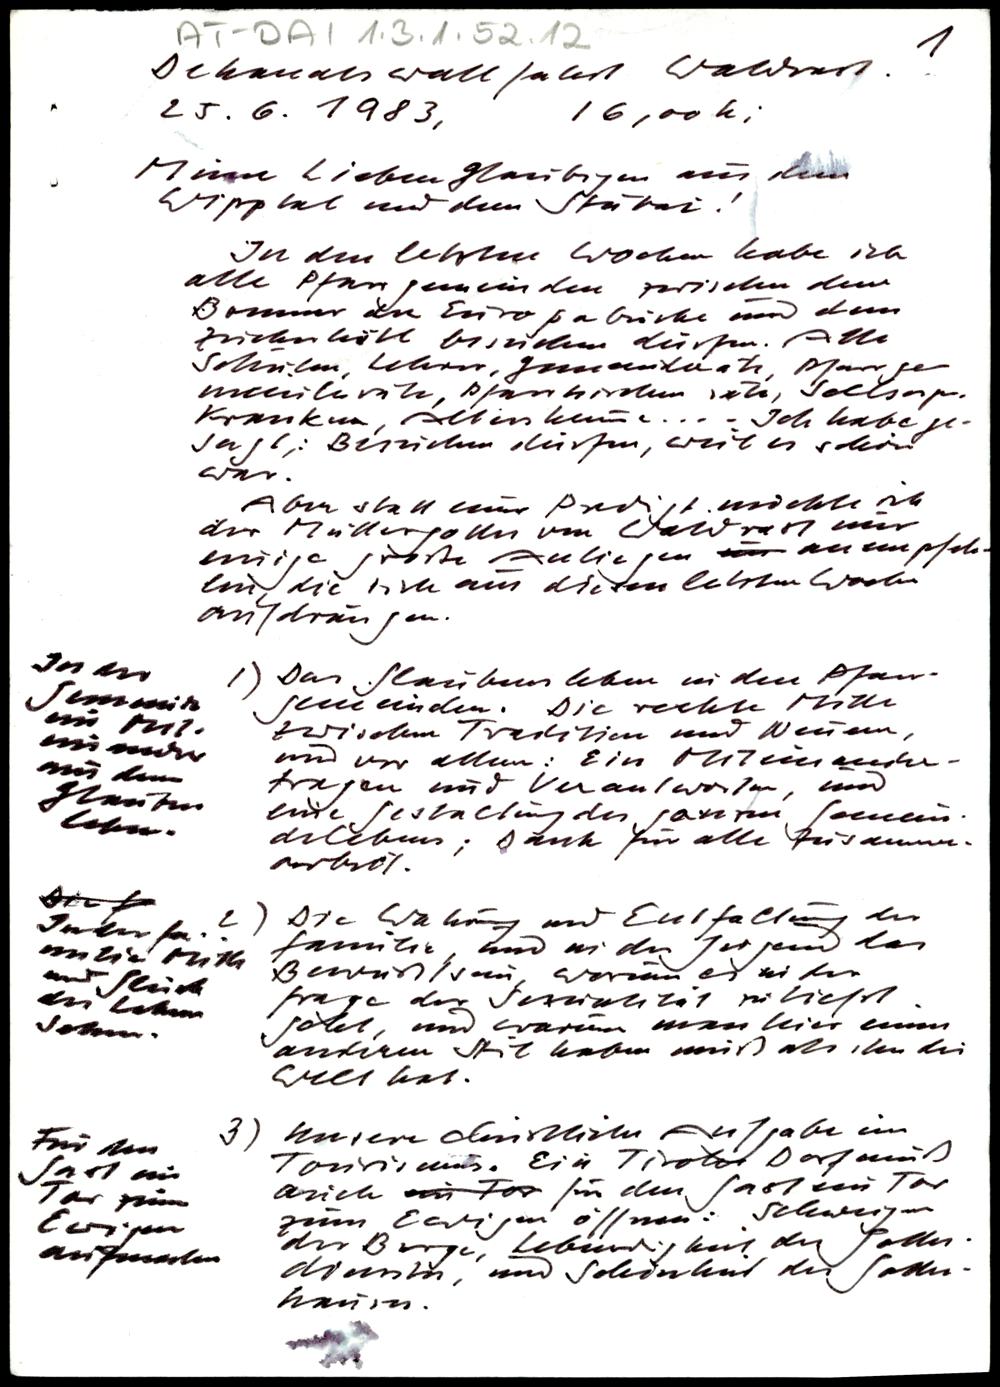 AT-DAI 1.3.1.52.12
1
Dekanatswallfahrt Waldrast.
25. 6. 1983, 16,00 h;
Meine Lieben Gläubigen aus dem
Wipptal und dem Stubai!
In den letzten Wochen habe ich
alle Pfarrgemeinden zwischen dem
Brenner der Europabrücke und dem
Zuckerhütl besuchen dürfen. Alle
Schulen, Lehrer, Gemeinderäte, Pfarrge-
meinderäte, Pfarrkirchenräte, Seelsorger
Kranken, Altersheime... - Ich habe ge-
sagt: Besuchen dürfen, weil es schön
war.
Aber statt einer Predigt möchte ich
der Muttergottes von Waldrast nur
einige große Anliegen nur anempfeh-
len, die sich aus diesen letzten Wochen
aufdrängen.
In der
Gemeinde
ein Mit-
einander
aus dem
Glauben
leben.
1) Das Glaubensleben in den Pfarr-
gemeinden. Die rechte Mitte
zwischen Tradition und Neuem,
und vor allem: Ein Miteinander-
tragen und Verantworten, und
eine Gestaltung des ganzen Gemein-
delebens; Dank für alle Zusammen-
arbeit.
Die f
In der Fa-
milie Mitte
und Glück
des Lebens
sehen.
2) Die Wahrung und Entfaltung der
Familie, und in der Jugend das
Bewußtsein, worum es in der
Frage der Sexualität zutiefst
geht, und warum man hier einen
anderen Stil haben muß als ihn die
Welt hat.
Für den
Gast ein
Tor zum
Ewigen
aufmachen
3) Unsere christliche Aufgabe im
Tourismus. Ein Tiroler Dorf muß
auch ein Tor für den Gast ein Tor
zum Ewigen öffnen: Schweigen
der Berge, Lebendigkeit der Gottes-
dienste, und Schönheit der Gottes-
häuser.